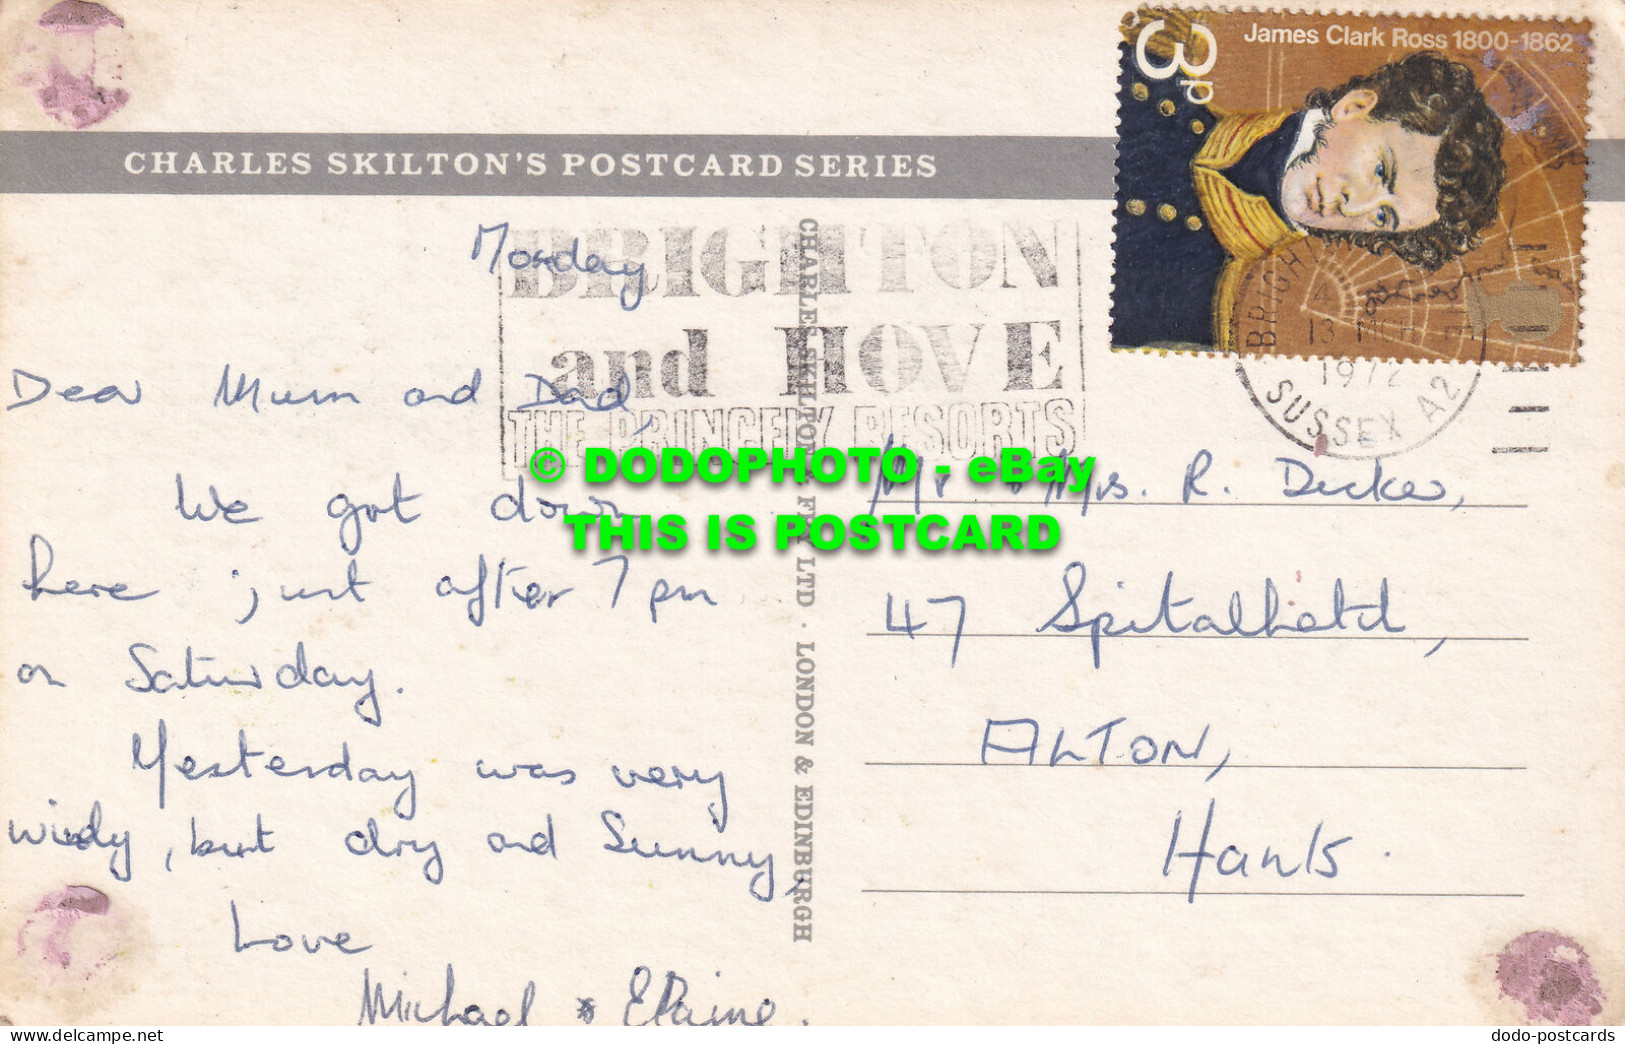 CHARLES SKILTON'S POSTCARD SERIES
3p
James Clark Ross 1800-1862
BRIGHTON
and HOVE
THE PRINCELY RESORTS
BRIGHT
13 MCH
1972
SUSSEX A2
Monday
Dear Mum and Dad,
We got down
here just after 7 pm
on Saturday.
Yesterday was very
windy, but dry and Sunny,
Love
Michael & Elaine.
CHARLES SKILTON & FRY LTD · LONDON & EDINBURGH
Mr & Mrs. R. Decker,
47 Spitalhatch,
ALTON,
Hants.
© DODOPHOTO - eBay
THIS IS POSTCARD
www.delcampe.net
dodo-postcards